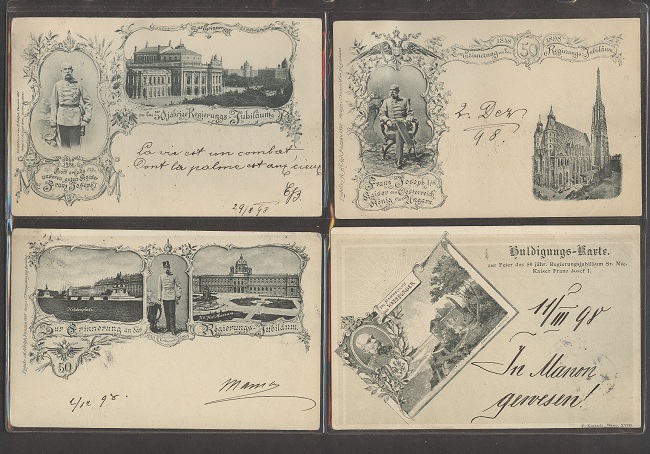 Zur Erinnerung
an das 50 jährige Regierungs-Jubiläum
1848
1898
Gott erhalte
unseren guten Kaiser
Franz Joseph I.
La vie est un combat
Dont la palme est aux cieux
29/8 98
Zur Erinnerung an das
1848 50 1898
Regierungs-Jubiläum
2. Dez
98.
Franz Joseph I.
Kaiser von Österreich
König von Ungarn.
Zur Erinnerung an das
Regierungs-Jubiläum.
50
2/12 98.
Mama
Huldigungs-Karte.
zur Feier des 50 jähr. Regierungsjubiläum Sr. Maj.
Kaiser Franz Josef I.
11/III 98
In Manon
gewesen!